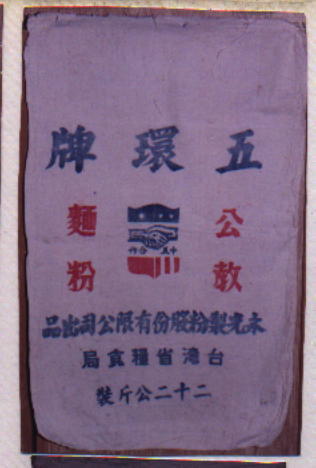 五環牌
公教
麵粉
中美合作
光製粉股份有限公司出品
台湾省糧食局
二十二公斤裝